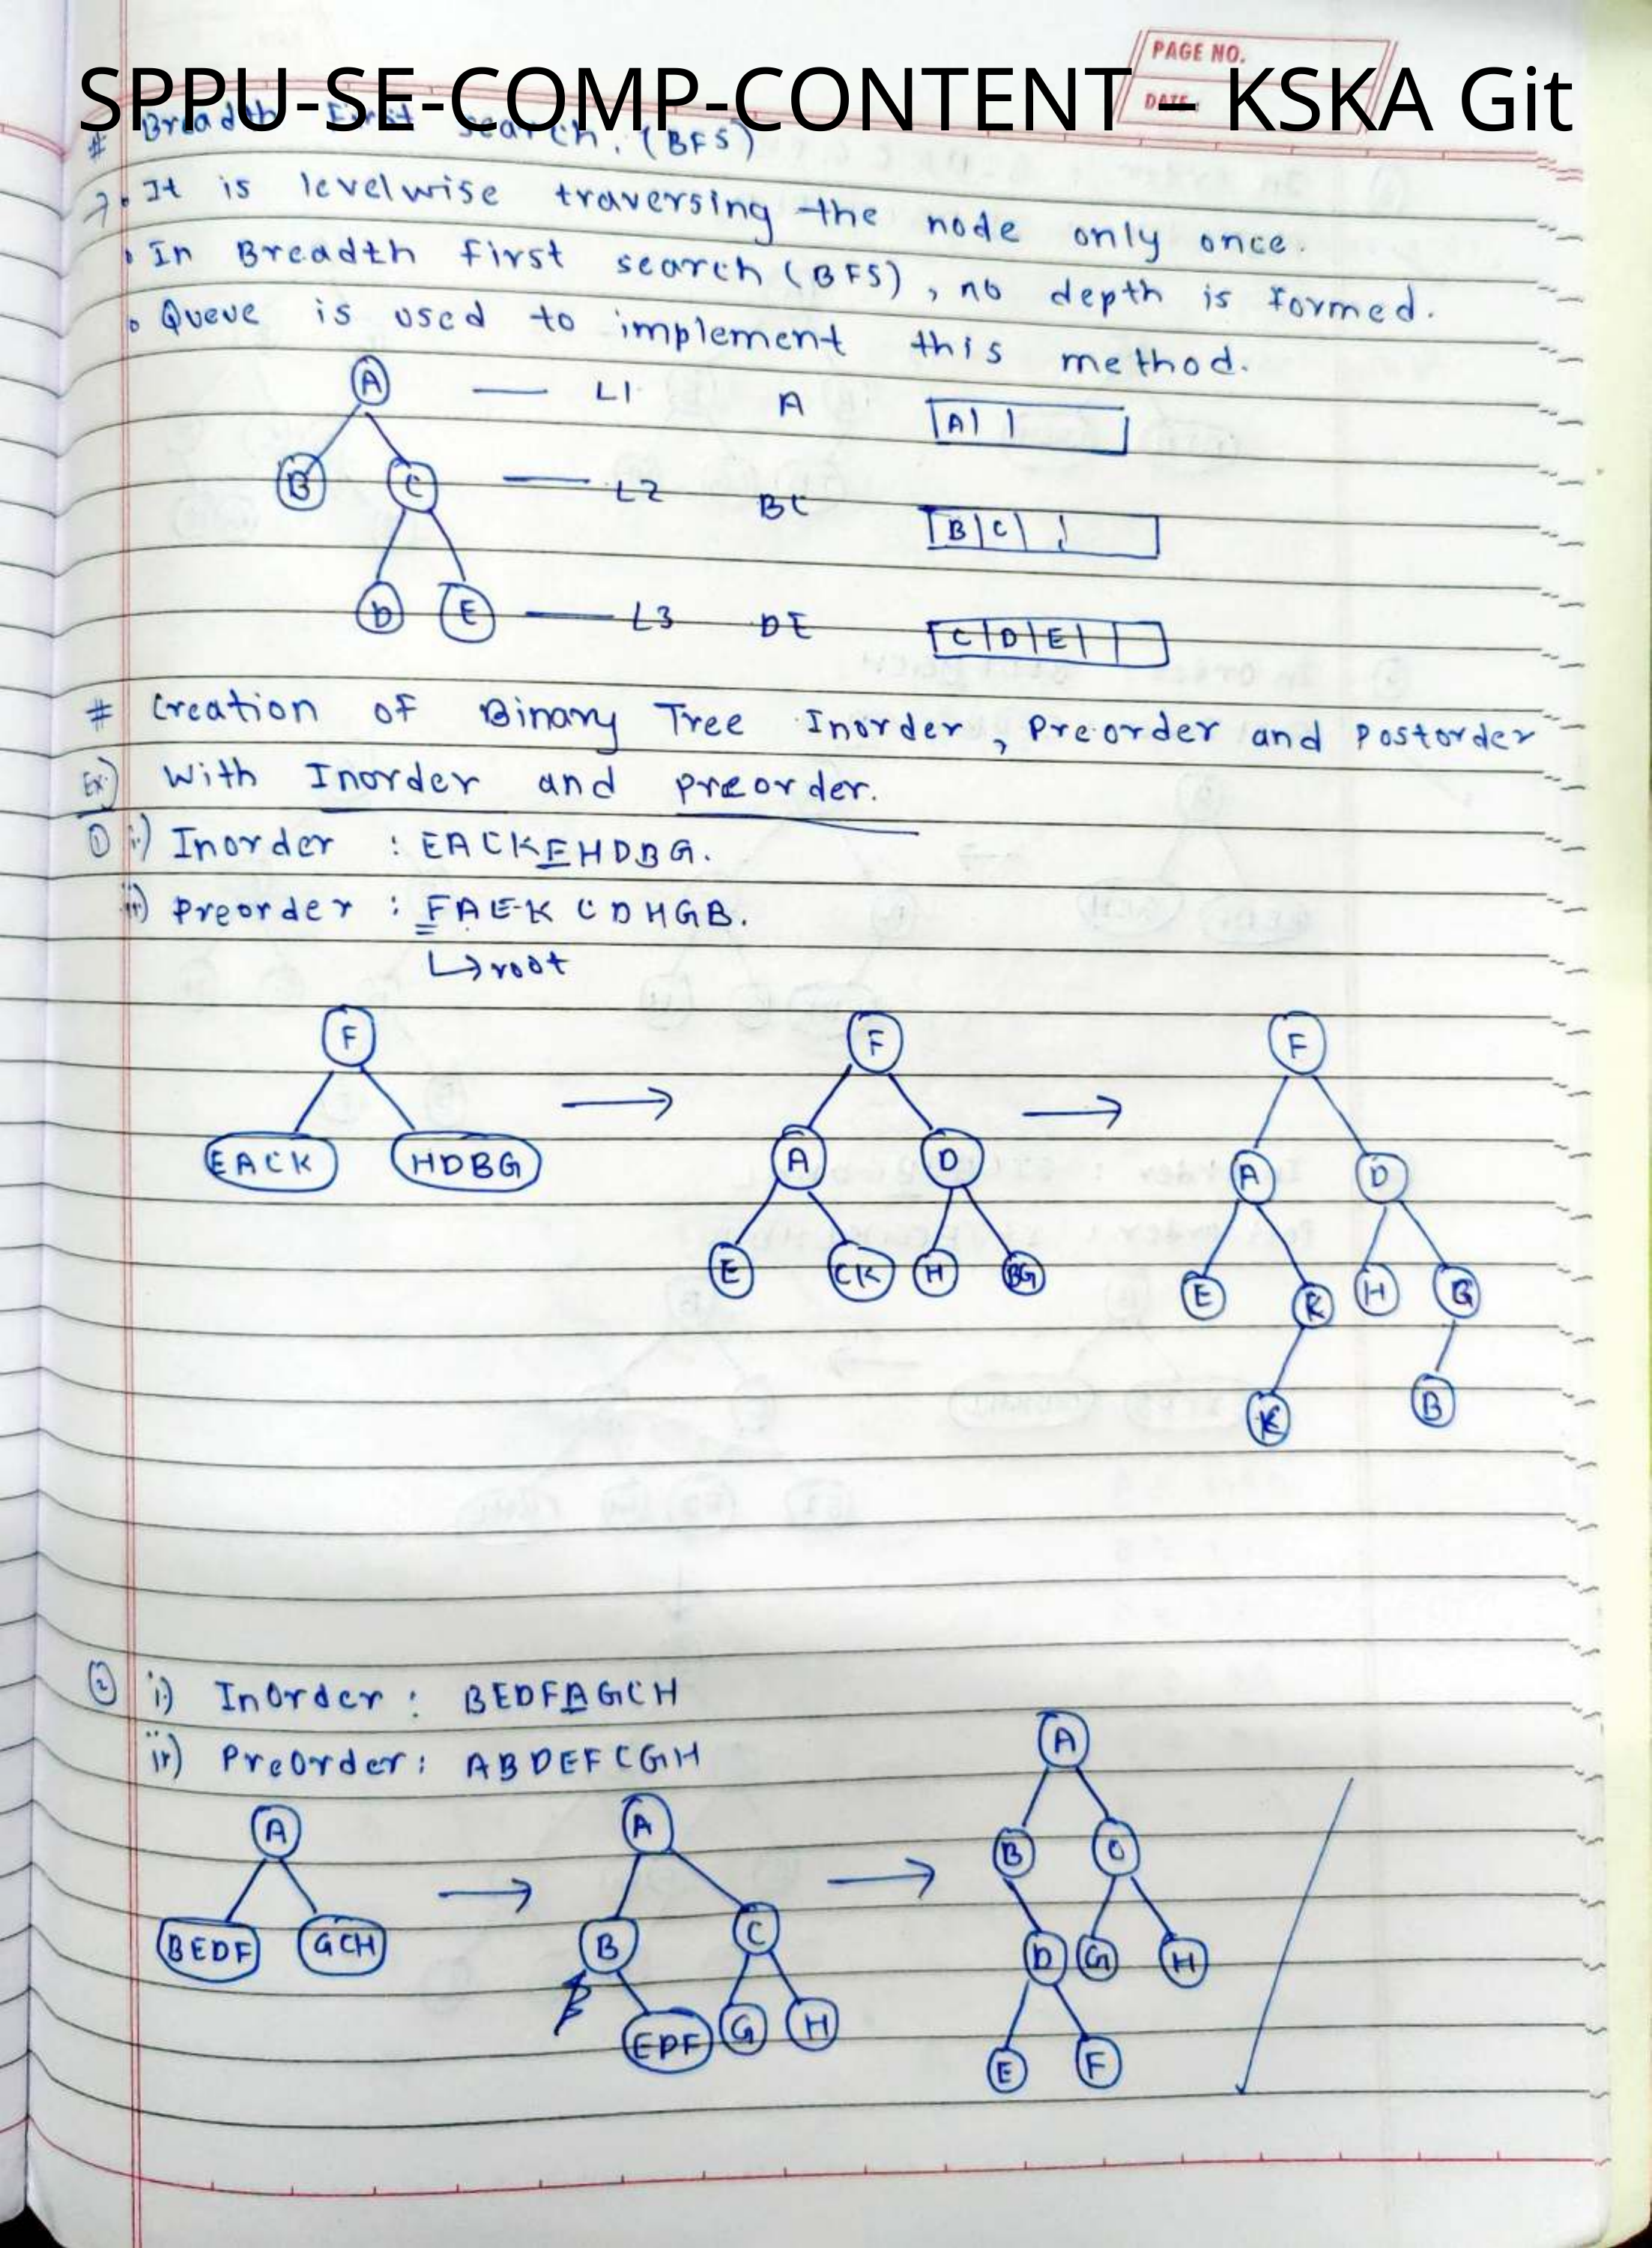 PAGE NO.
DATE:
SPPU-SE-COMP-CONTENT – KSKA Git
# Breadth First search. (BFS)
→ • It is levelwise traversing the node only once.
• In Breadth first search (BFS), no depth is formed.
• Queue is used to implement this method.
A — L1 A |A| |
B C — L2 BC |B|C| |
D E — L3 DE |C|D|E| | |
# Creation of Binary Tree Inorder, Preorder and Postorder
Ex) With Inorder and preorder.
① i) Inorder : EACKFHDBG.
ii) Preorder : FAEKCDHGB.
↳ root
F → F → F
EACK HDBG A D A D
E CK H BG E K H G
K B
② i) InOrder : BEDFAGCH
ii) PreOrder : ABDEFCGH
A → A → A
BEDF GCH B C B C
EDF G H D G H
E F